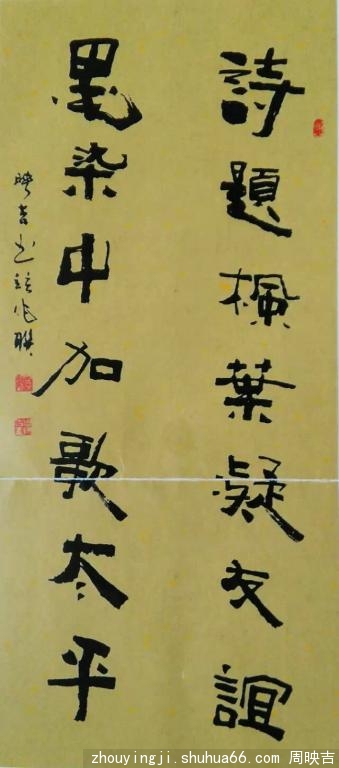 詩題楓葉凝友誼
墨染中加歌太平
映吉书 作联
zhouyingji.shuhua66.com 周映吉